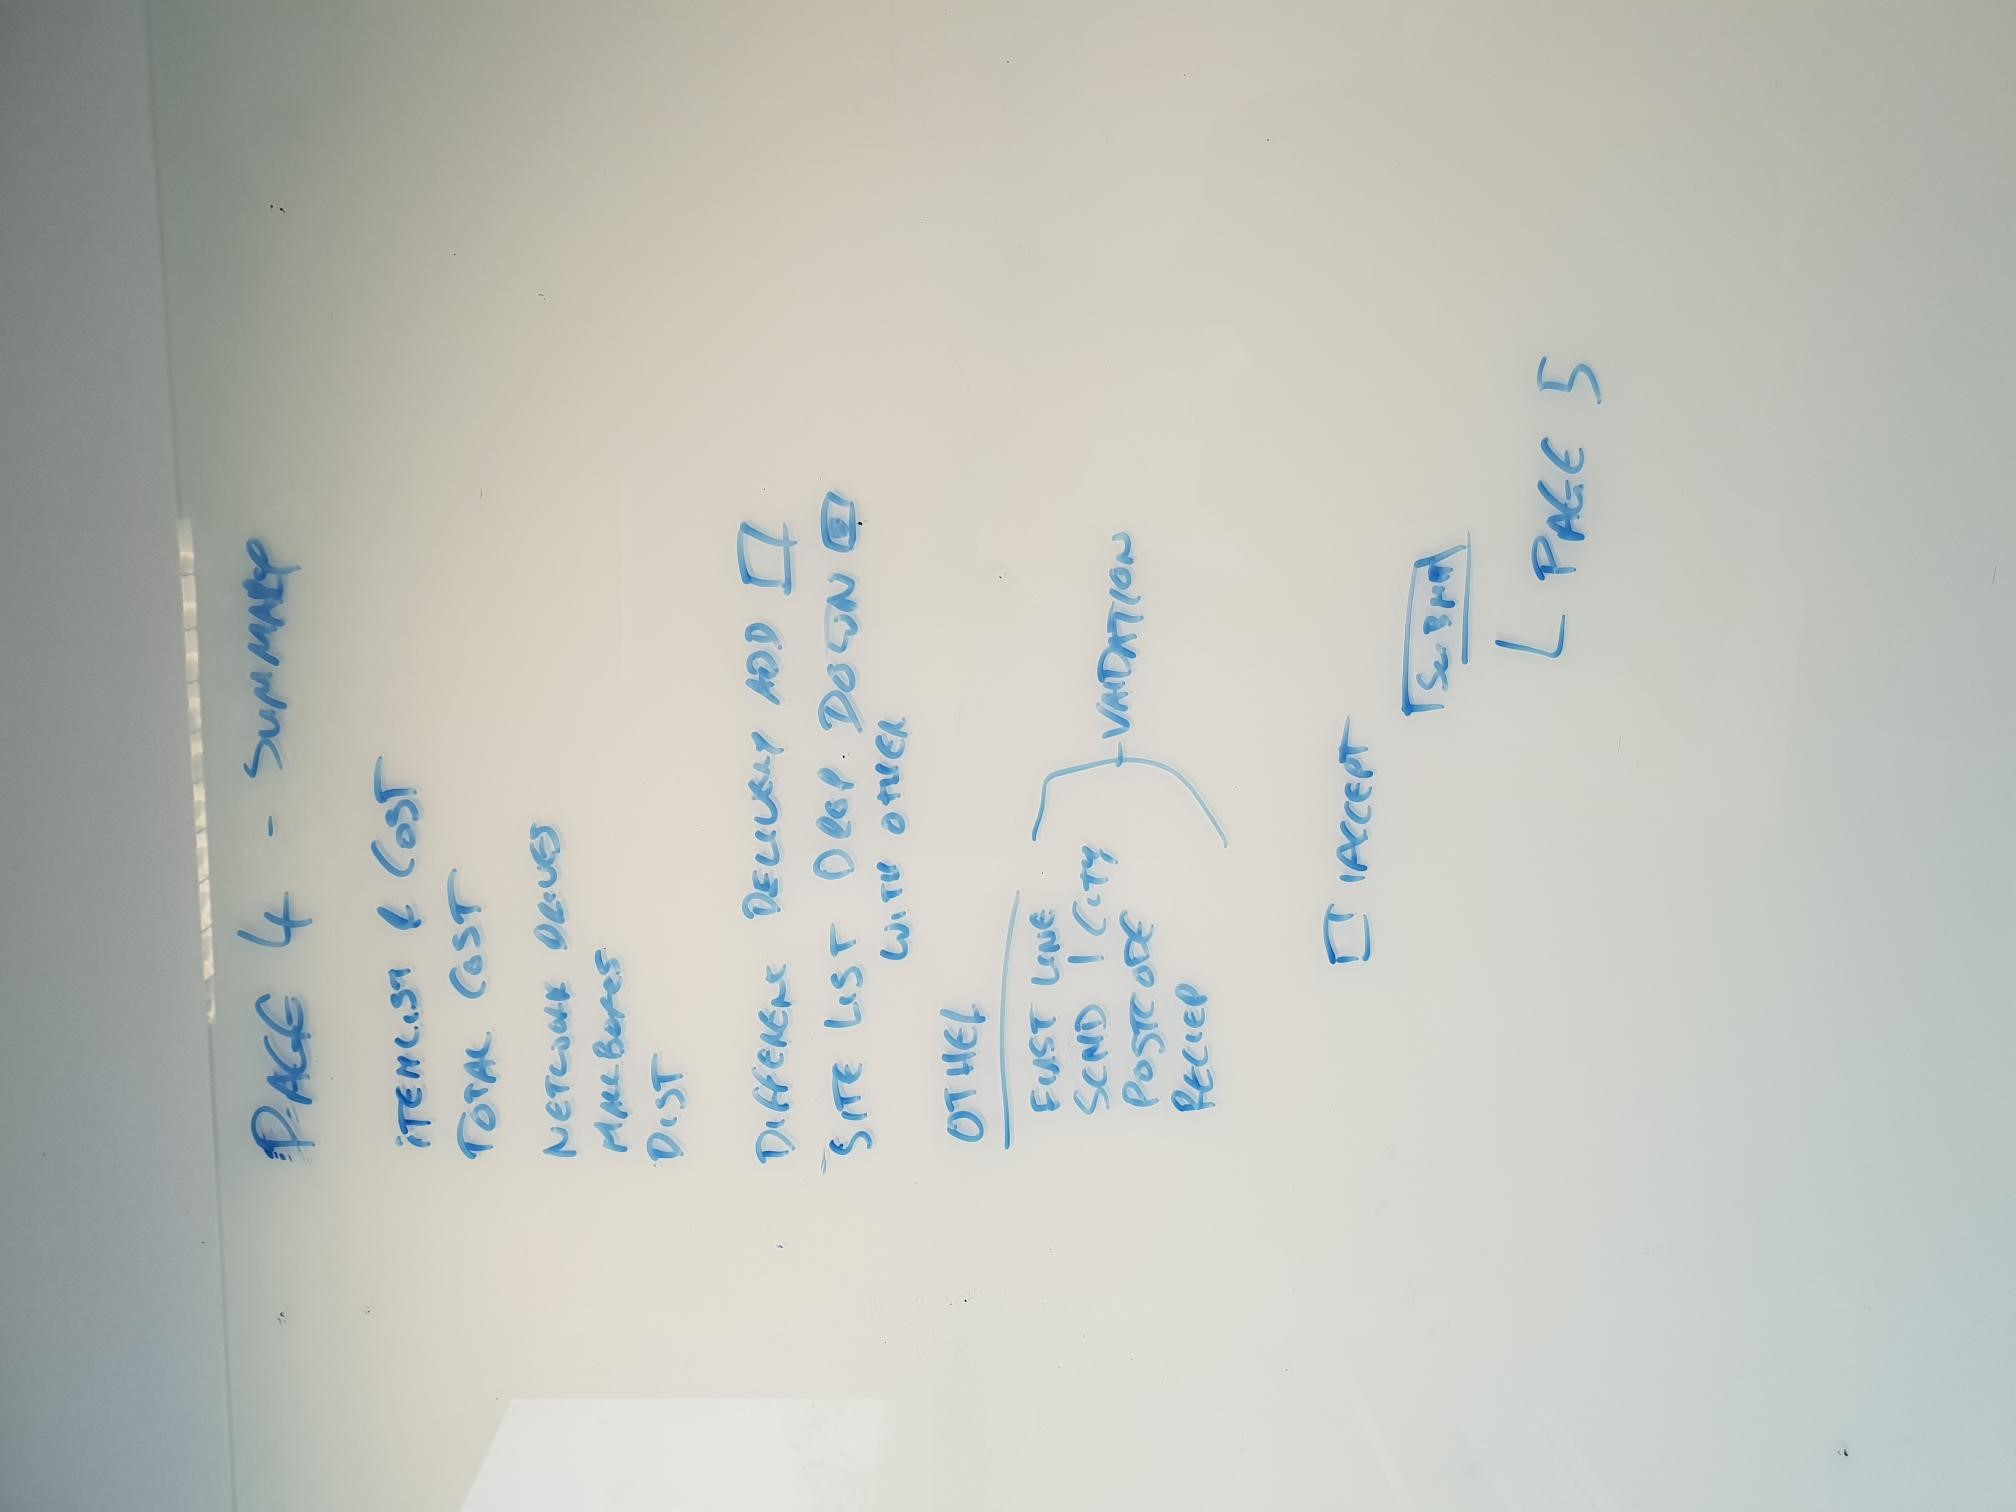 PAGE 4 - SUMMARY
ITEMLIST & COST
TOTAL COST
NETWORK DRIVES
MAILBOXES
DIST
DIFFERENT DELIVERY ADD
SITE LIST DROP DOWN
WITH OTHER
OTHER
FIRST LINE
SCND / CITY
POSTCODE
RECIEP
VALIDATION
I ACCEPT
SUBMIT
PAGE 5